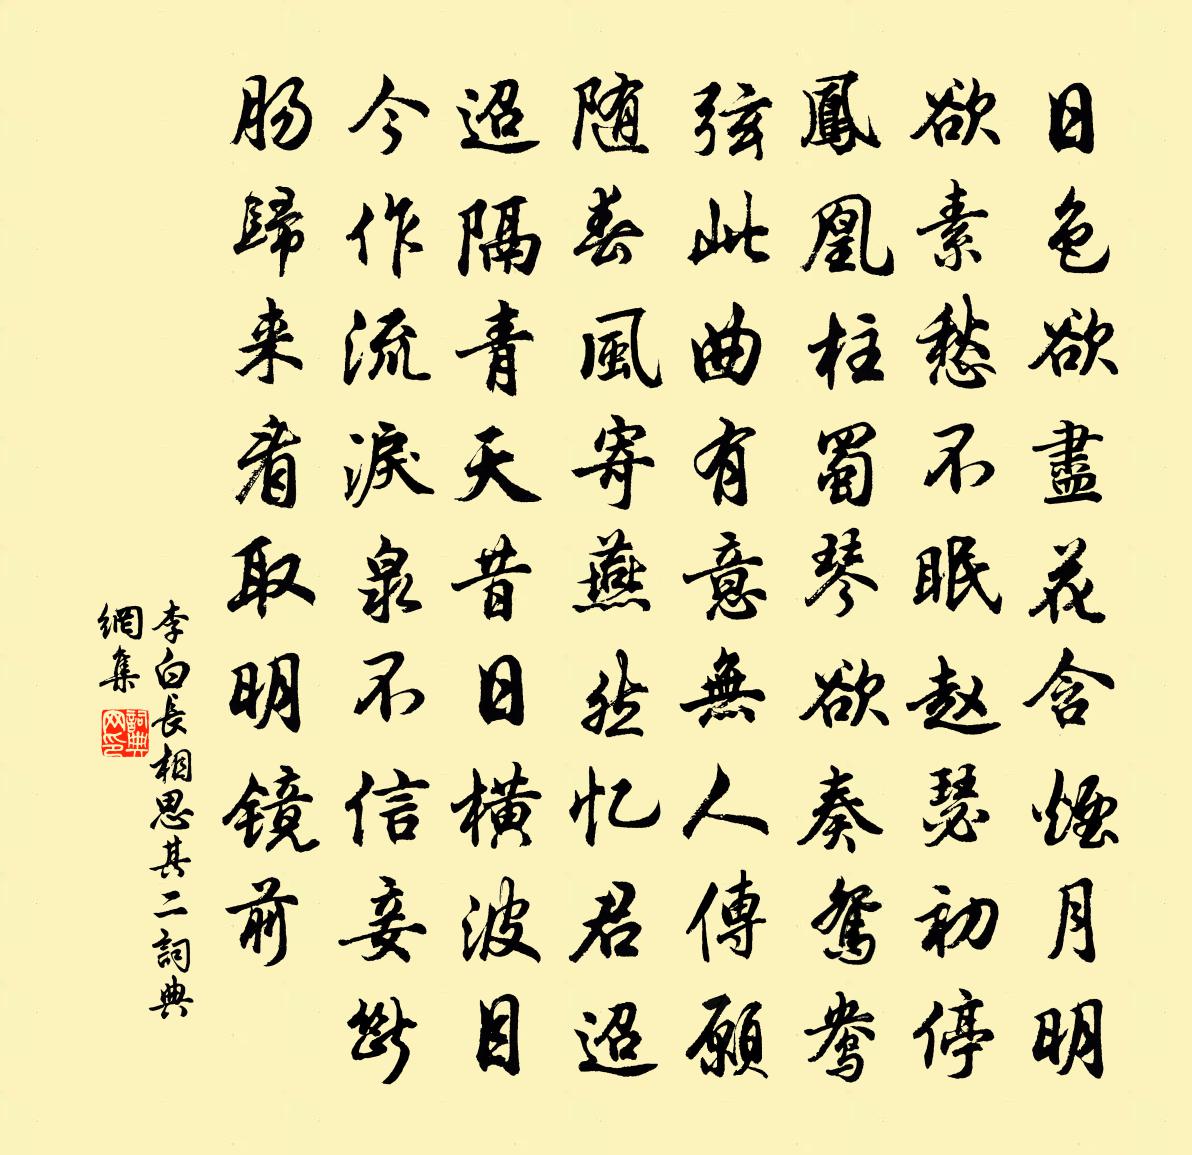 日色欲盡花含煙月明
欲素愁不眠赵瑟初停
鳳凰柱蜀琴欲奏鴛鴦
弦此曲有意無人傳願
随春風寄燕然忆君迢
迢隔青天昔日橫波目
今作流淚泉不信妾斷
肠歸来看取明镜前
李白長相思其二詞典
網集
詞典
网印